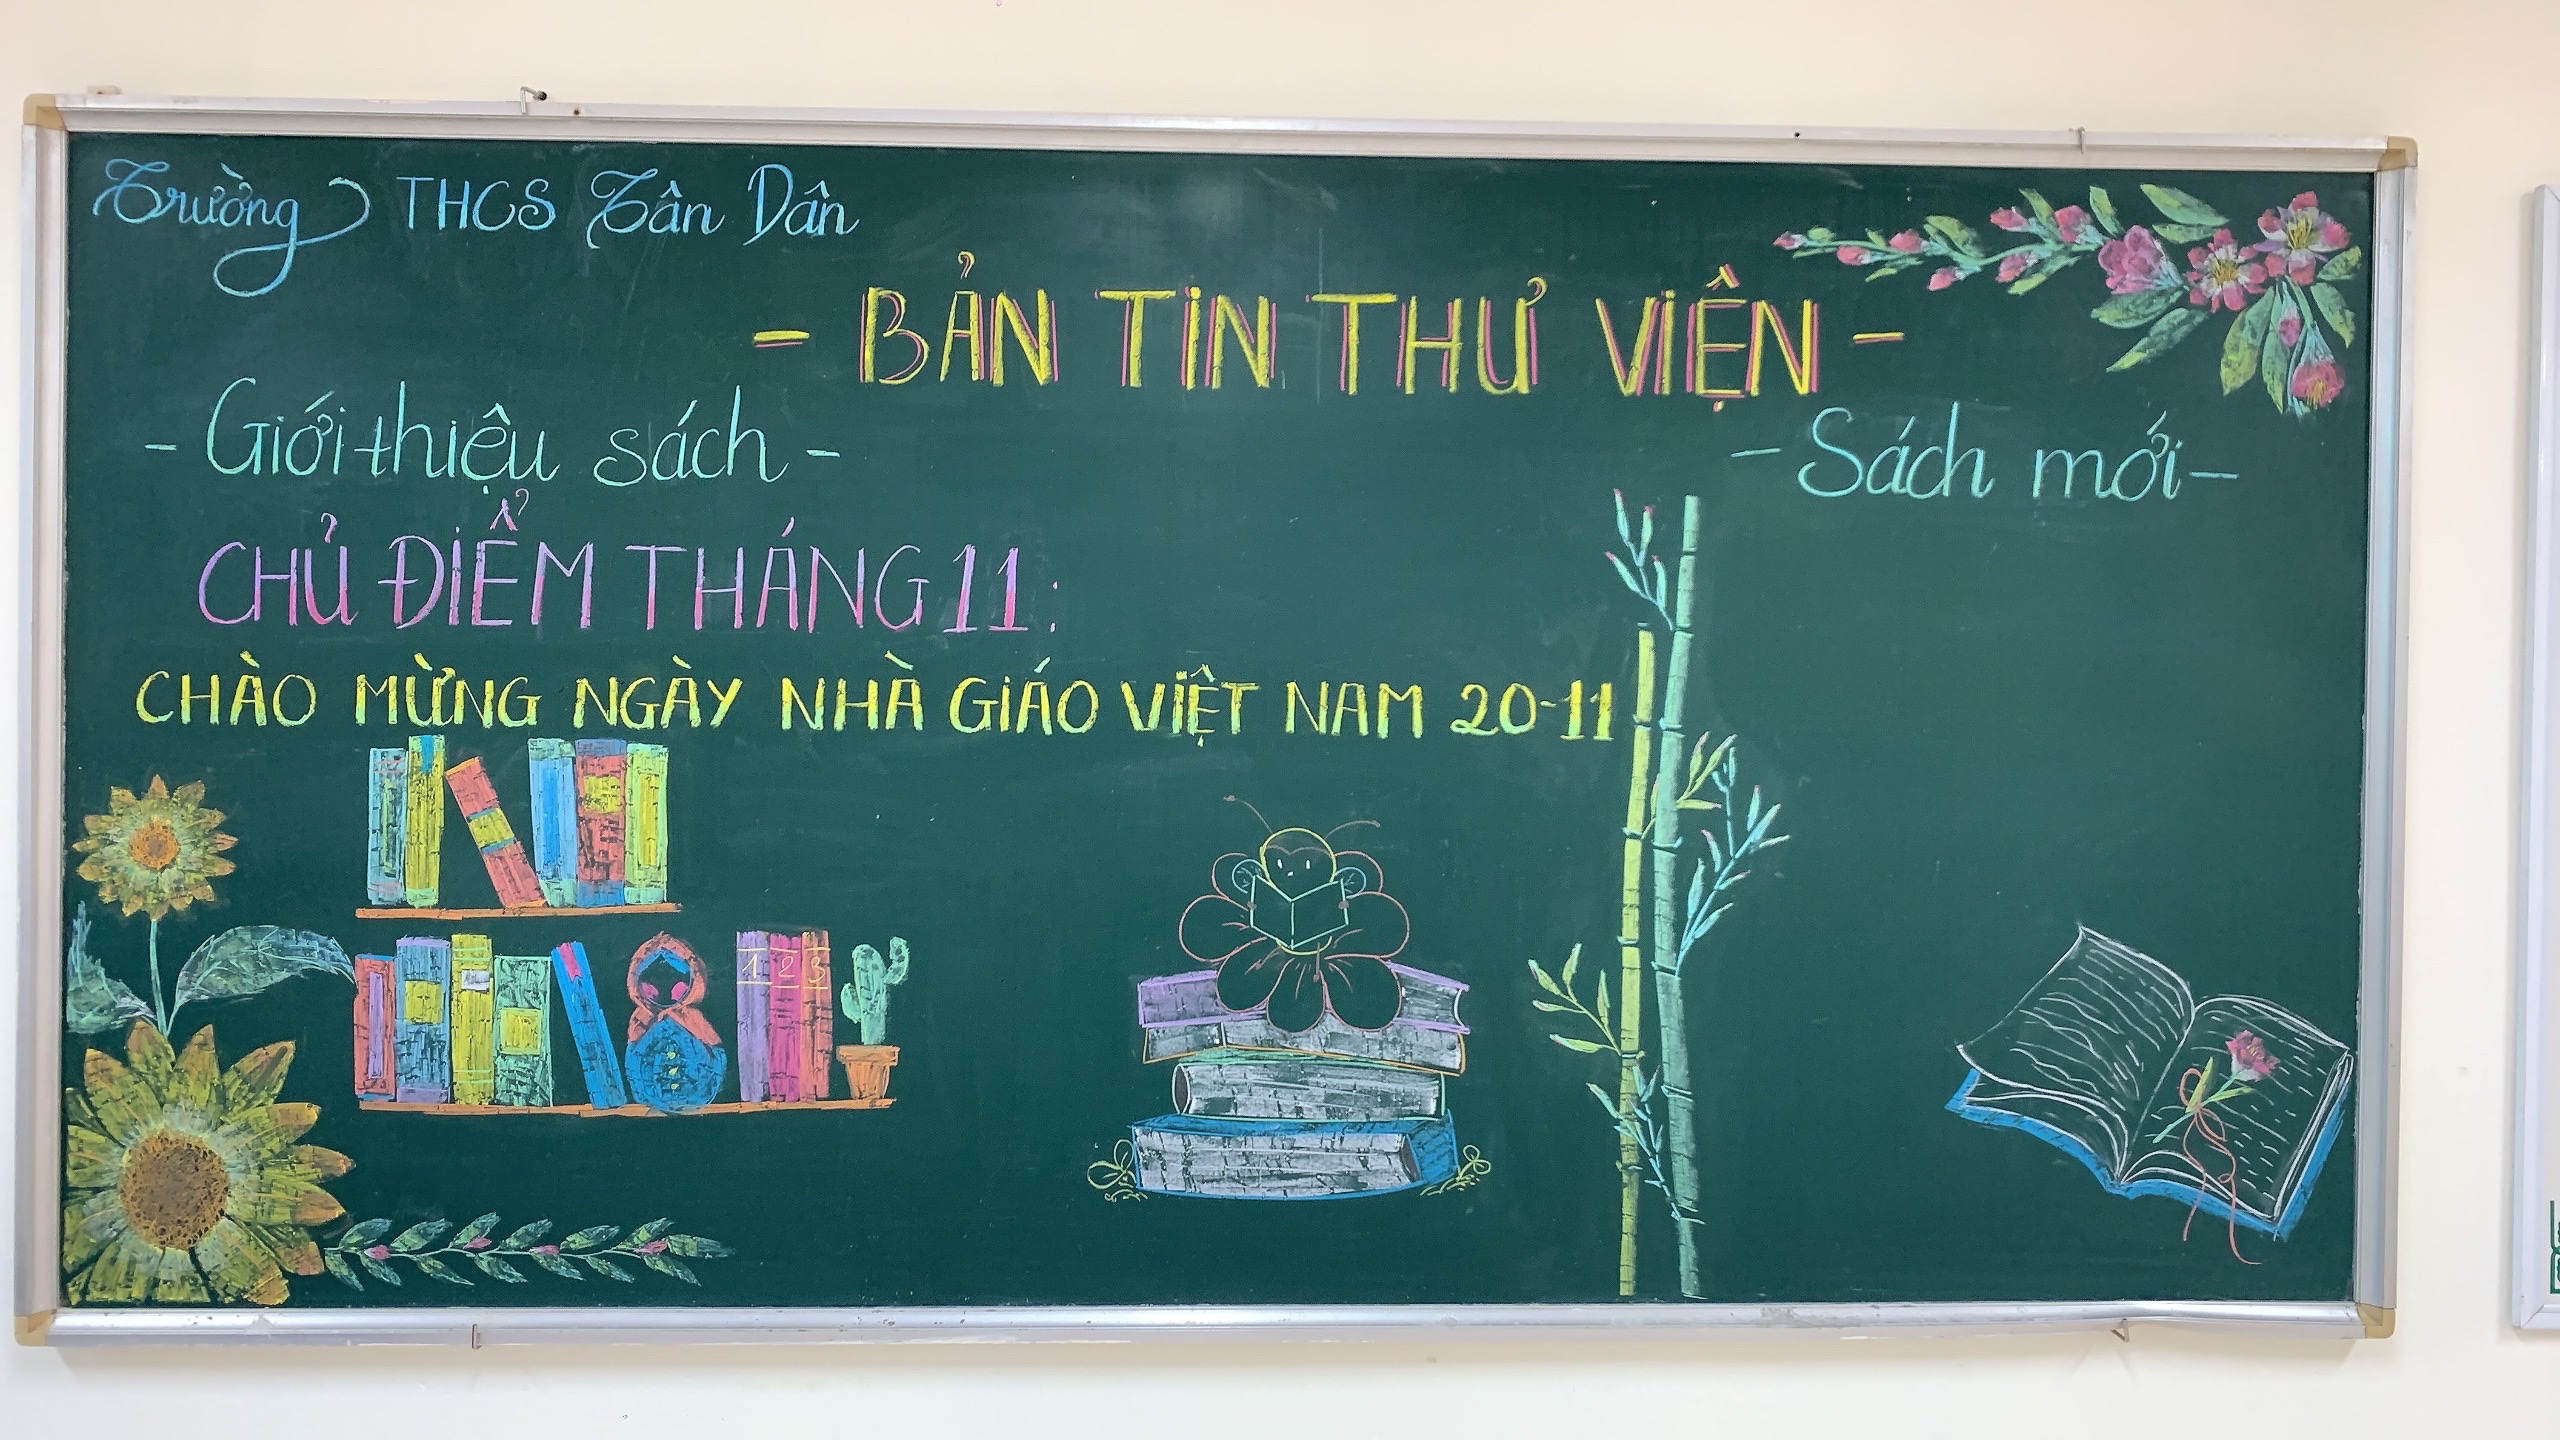 Trường THCS Tân Dân
- BẢN TIN THƯ VIỆN -
- Giới thiệu sách -
- Sách mới -
CHỦ ĐIỂM THÁNG 11:
CHÀO MỪNG NGÀY NHÀ GIÁO VIỆT NAM 20-11
1 2 3